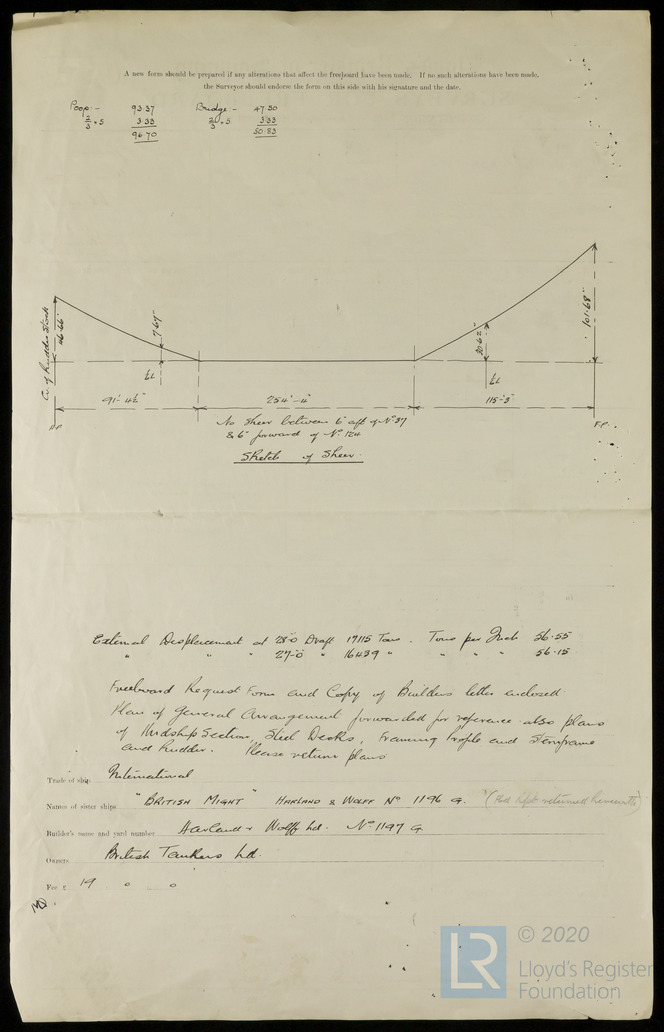 A new form should be prepared if any alterations that affect the freeboard have been made. If no such alterations have been made,
the Surveyor should endorse the form on this side with his signature and the date.
Poop - 93.37 Bridge - 47.50
2/3 × 5 3.33 2/3 × 5 3.33
96.70 50.83
C. of Rudder Stock
46.66"
7.67"
30.62"
101.68"
91'-4½" 254'-4" 115'-3"
F.P.
No Sheer between 6" aft of Nº 37
& 6" forward of Nº 124
Sketch of Sheer.
External Displacement at 28'-0 Draft 17115 Tons. Tons per Inch 56.55
" " " 27'-0 " 16439 " " " " 56.15
Freeboard Request Form and Copy of Builders letter enclosed.
Plan of General Arrangement forwarded for reference also plans
of Midship Section, Steel Decks, Framing Profile and Sternframe
and Rudder. Please return plans
Trade of ship International
Names of sister ships "BRITISH MIGHT" HARLAND & WOLFF Nº 1196 G. (returned herewith)
Builder's name and yard number Harland & Wolff Ltd. Nº 1197 G
Owners British Tankers Ltd.
Fee £ 19 0 0
LR © 2020
Lloyd's Register
Foundation